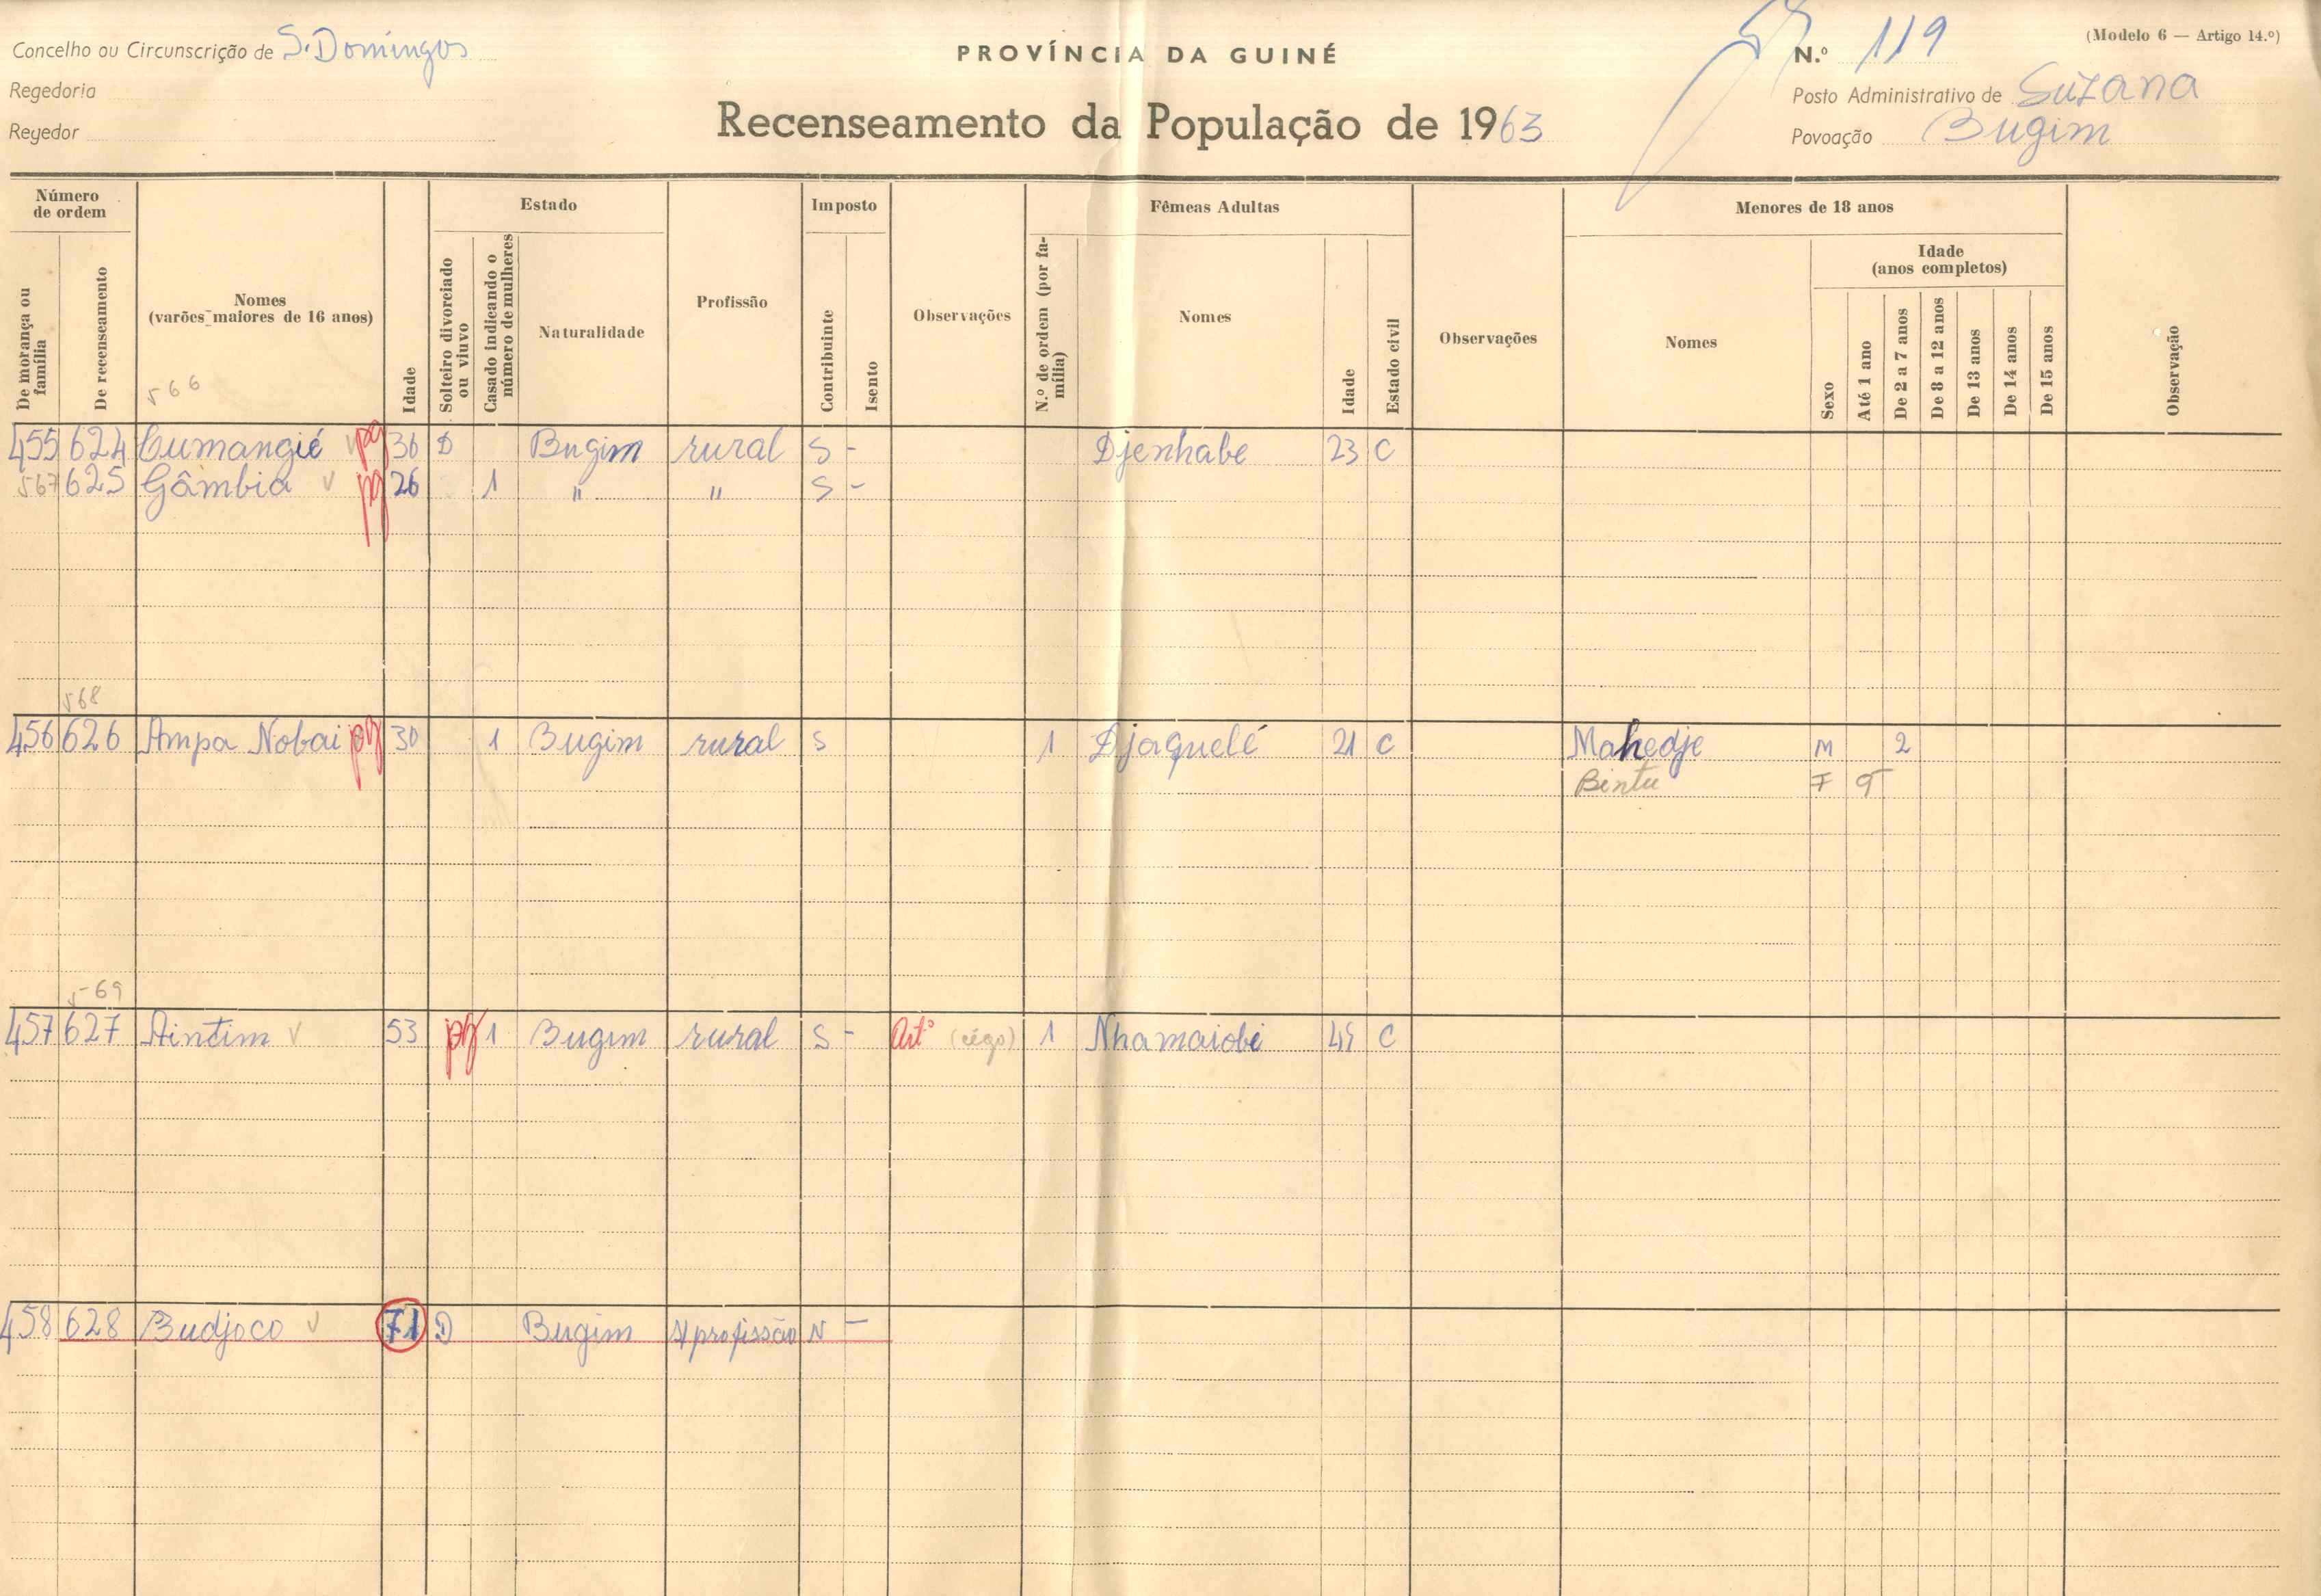 Concelho ou Circunscrição de S. Domingos
Regedoria
Regedor
PROVÍNCIA DA GUINÉ
Recenseamento da População de 1963
(Modelo 6 — Artigo 14.º)
N.º 119
Posto Administrativo de Suzana
Povoação Bugim
Número de ordem
De morança ou família
De recenseamento
Nomes
(varões maiores de 16 anos)
566
Idade
Estado
Solteiro divorciado ou viuvo
Casado indicando o número de mulheres
Naturalidade
Profissão
Imposto
Contribuinte
Isento
Observações
Fêmeas Adultas
N.º de ordem (por família)
Nomes
Idade
Estado civil
Observações
Menores de 18 anos
Nomes
Sexo
Idade
(anos completos)
Até 1 ano
De 2 a 7 anos
De 8 a 12 anos
De 13 anos
De 14 anos
De 15 anos
Observação
455 624 Cumangié pg 36 D Bugim rural S - Djenhabe 23 C
567 625 Gâmbia pg 26 1 " " S -
568
456 626 Ampa Nobai pg 30 1 Bugim rural S 1 Djaquelé 21 C Mahedje M 2
Bintu F
569
457 627 Aintim 53 pg 1 Bugim rural S - Artº (cégo) 1 Nhamaiobé 45 C
458 628 Budjoco 71 D Bugim S/profissão N -